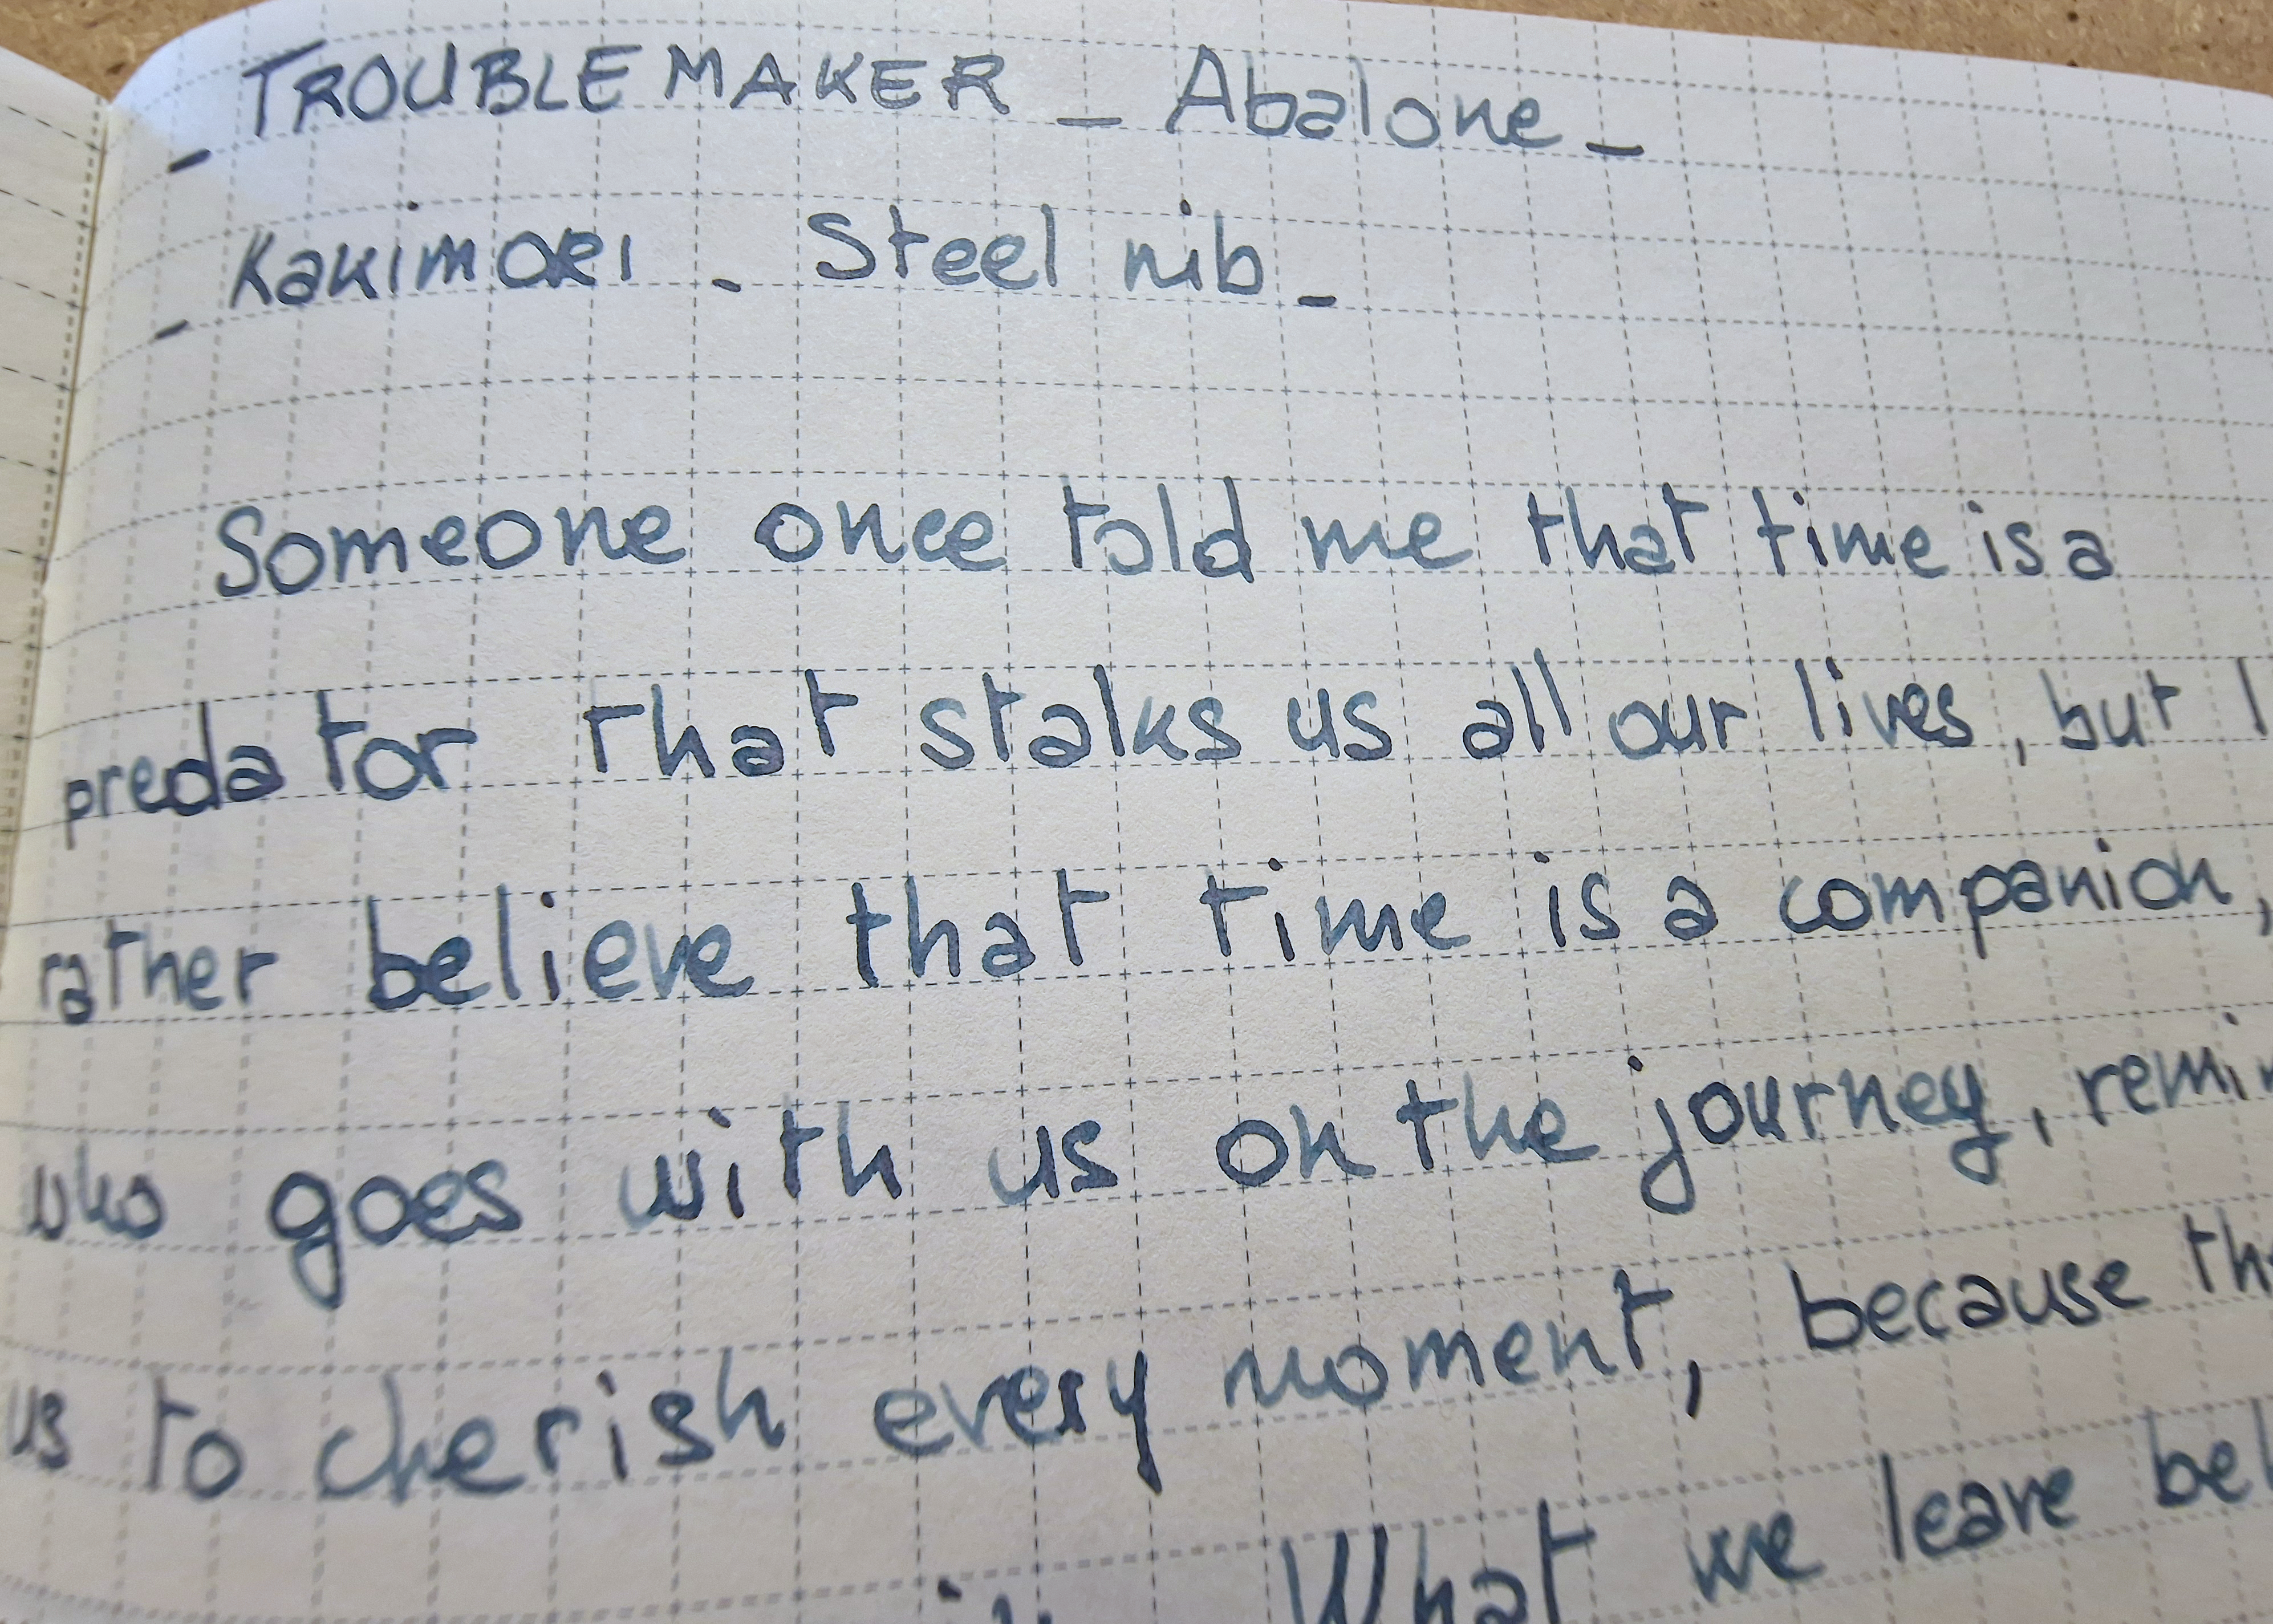 _ TROUBLEMAKER _ Abalone _
_ Kakimori _ Steel nib _
Someone once told me that time is a
predator that stalks us all our lives, but I
rather believe that time is a companion,
who goes with us on the journey,
us to cherish every moment, because
What we leave